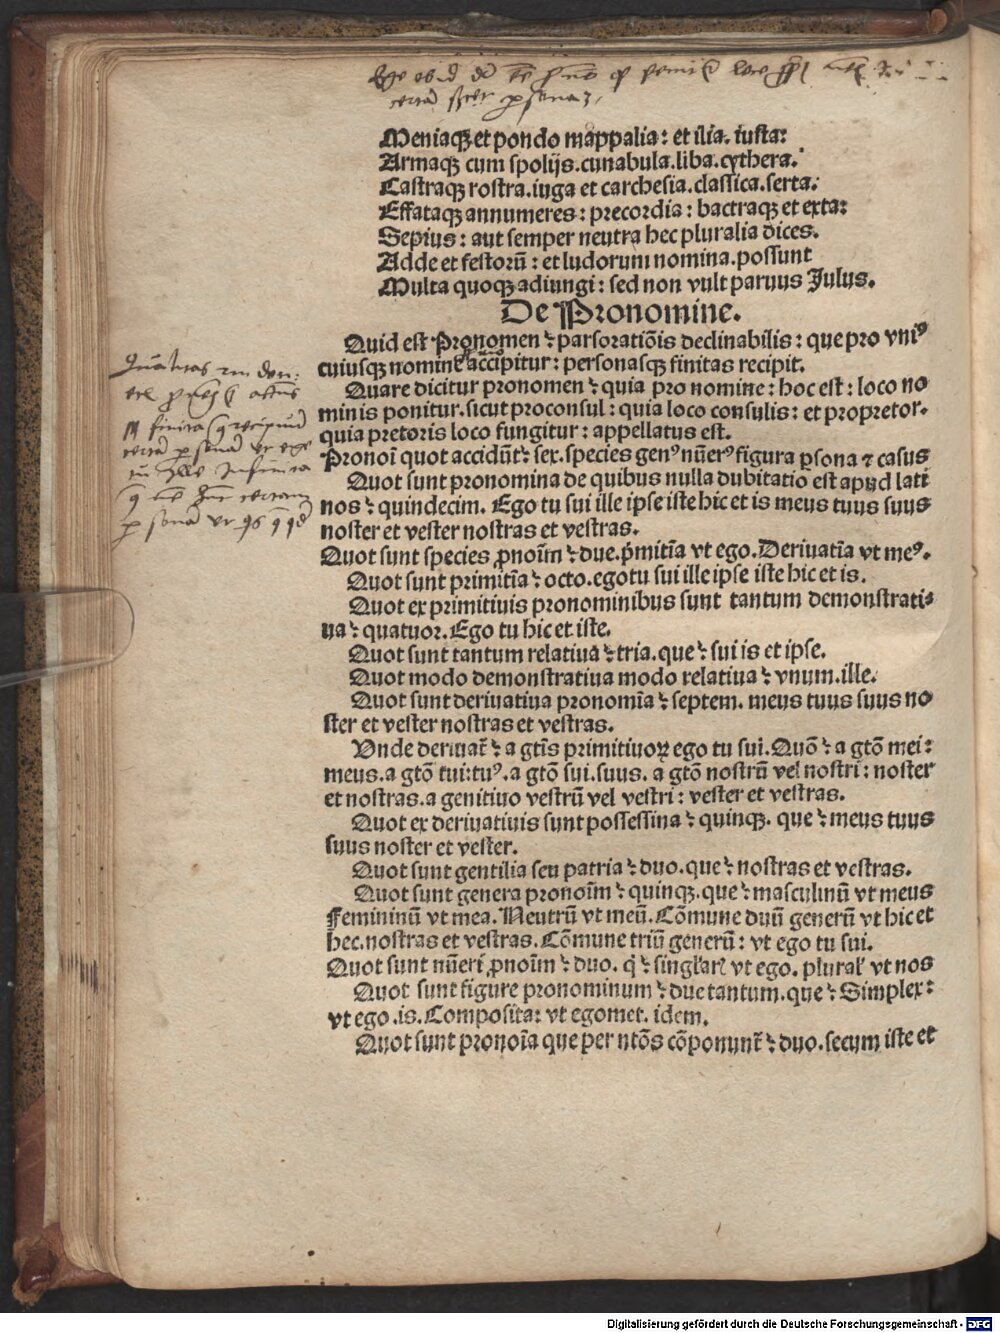 Meniaqꝫ et pondo mappalia: et ilia. iusta:
Armaqꝫ cum spolijs. cunabula. liba. cythera.
Castraqꝫ rostra. iuga et carchesia. classica. serta:
Effataqꝫ annumeres: precordia: bactraqꝫ et exta:
Sepius: aut semper neutra hec pluralia dices.
Adde et festorū: et ludorum nomina. possunt
Multa quoqꝫ adiungi: sed non vult paruus Iulus.
De Pronomine.
Quid est Pronomen? parsoratiōis declinabilis: que pro vniꝰ
cuiusqꝫ nomine accipitur: personasqꝫ finitas recipit.
Quare dicitur pronomen? quia pro nomine: hoc est: loco no
minis ponitur. sicut proconsul: quia loco consulis: et propretor.
quia pretoris loco fungitur: appellatus est.
Pronoī quot accidūt? sex. species genꝰ nūerꝰ figura ꝑsona ⁊ casus
Quot sunt pronomina de quibus nulla dubitatio est apud lati
nos? quindecim. Ego tu sui ille ipse iste hic et is meus tuus suus
noster et vester nostras et vestras.
Quot sunt species ꝓnoīm? due. p̄mitīa vt ego. Deriuatīa vt meꝰ.
Quot sunt primitīa? octo. ego tu sui ille ipse iste hic et is.
Quot ex primitiuis pronominibus sunt tantum demonstrati⸗
ua? quatuor. Ego tu hic et iste.
Quot sunt tantum relatiua? tria. que? sui is et ipse.
Quot modo demonstratiua modo relatiua? vnum. ille.
Quot sunt deriuatiua pronomīa? septem. meus tuus suus no
ster et vester nostras et vestras.
Vnde deriuāt? a gtīs primitiuoꝝ ego tu sui. Quō? a gtō mei:
meus. a gtō tui: tuꝰ. a gtō sui. suus. a gtō nostrū vel nostri: noster
et nostras. a genitiuo vestrū vel vestri: vester et vestras.
Quot ex deriuatiuis sunt possessiua? quinqꝫ. que? meus tuus
suus noster et vester.
Quot sunt gentilia seu patria? duo. que? nostras et vestras.
Quot sunt genera pronoīm? quinqꝫ. que? masculinū vt meus
Femininū vt mea. Neutrū vt meū. Cōmune duū generū vt hic et
hec. nostras et vestras. Cōmune triū generū: vt ego tu sui.
Quot sunt nūeri ꝓnoīm? duo. q̄? singlar̄ vt ego. plural̄ vt nos
Quot sunt figure pronominum? due tantum. que? Simplex:
vt ego. is. Composita: vt egomet. idem.
Quot sunt pronoīa que per ntōs cōponunt̄? duo. secum iste et
Digitalisierung gefördert durch die Deutsche Forschungsgemeinschaft - DFG